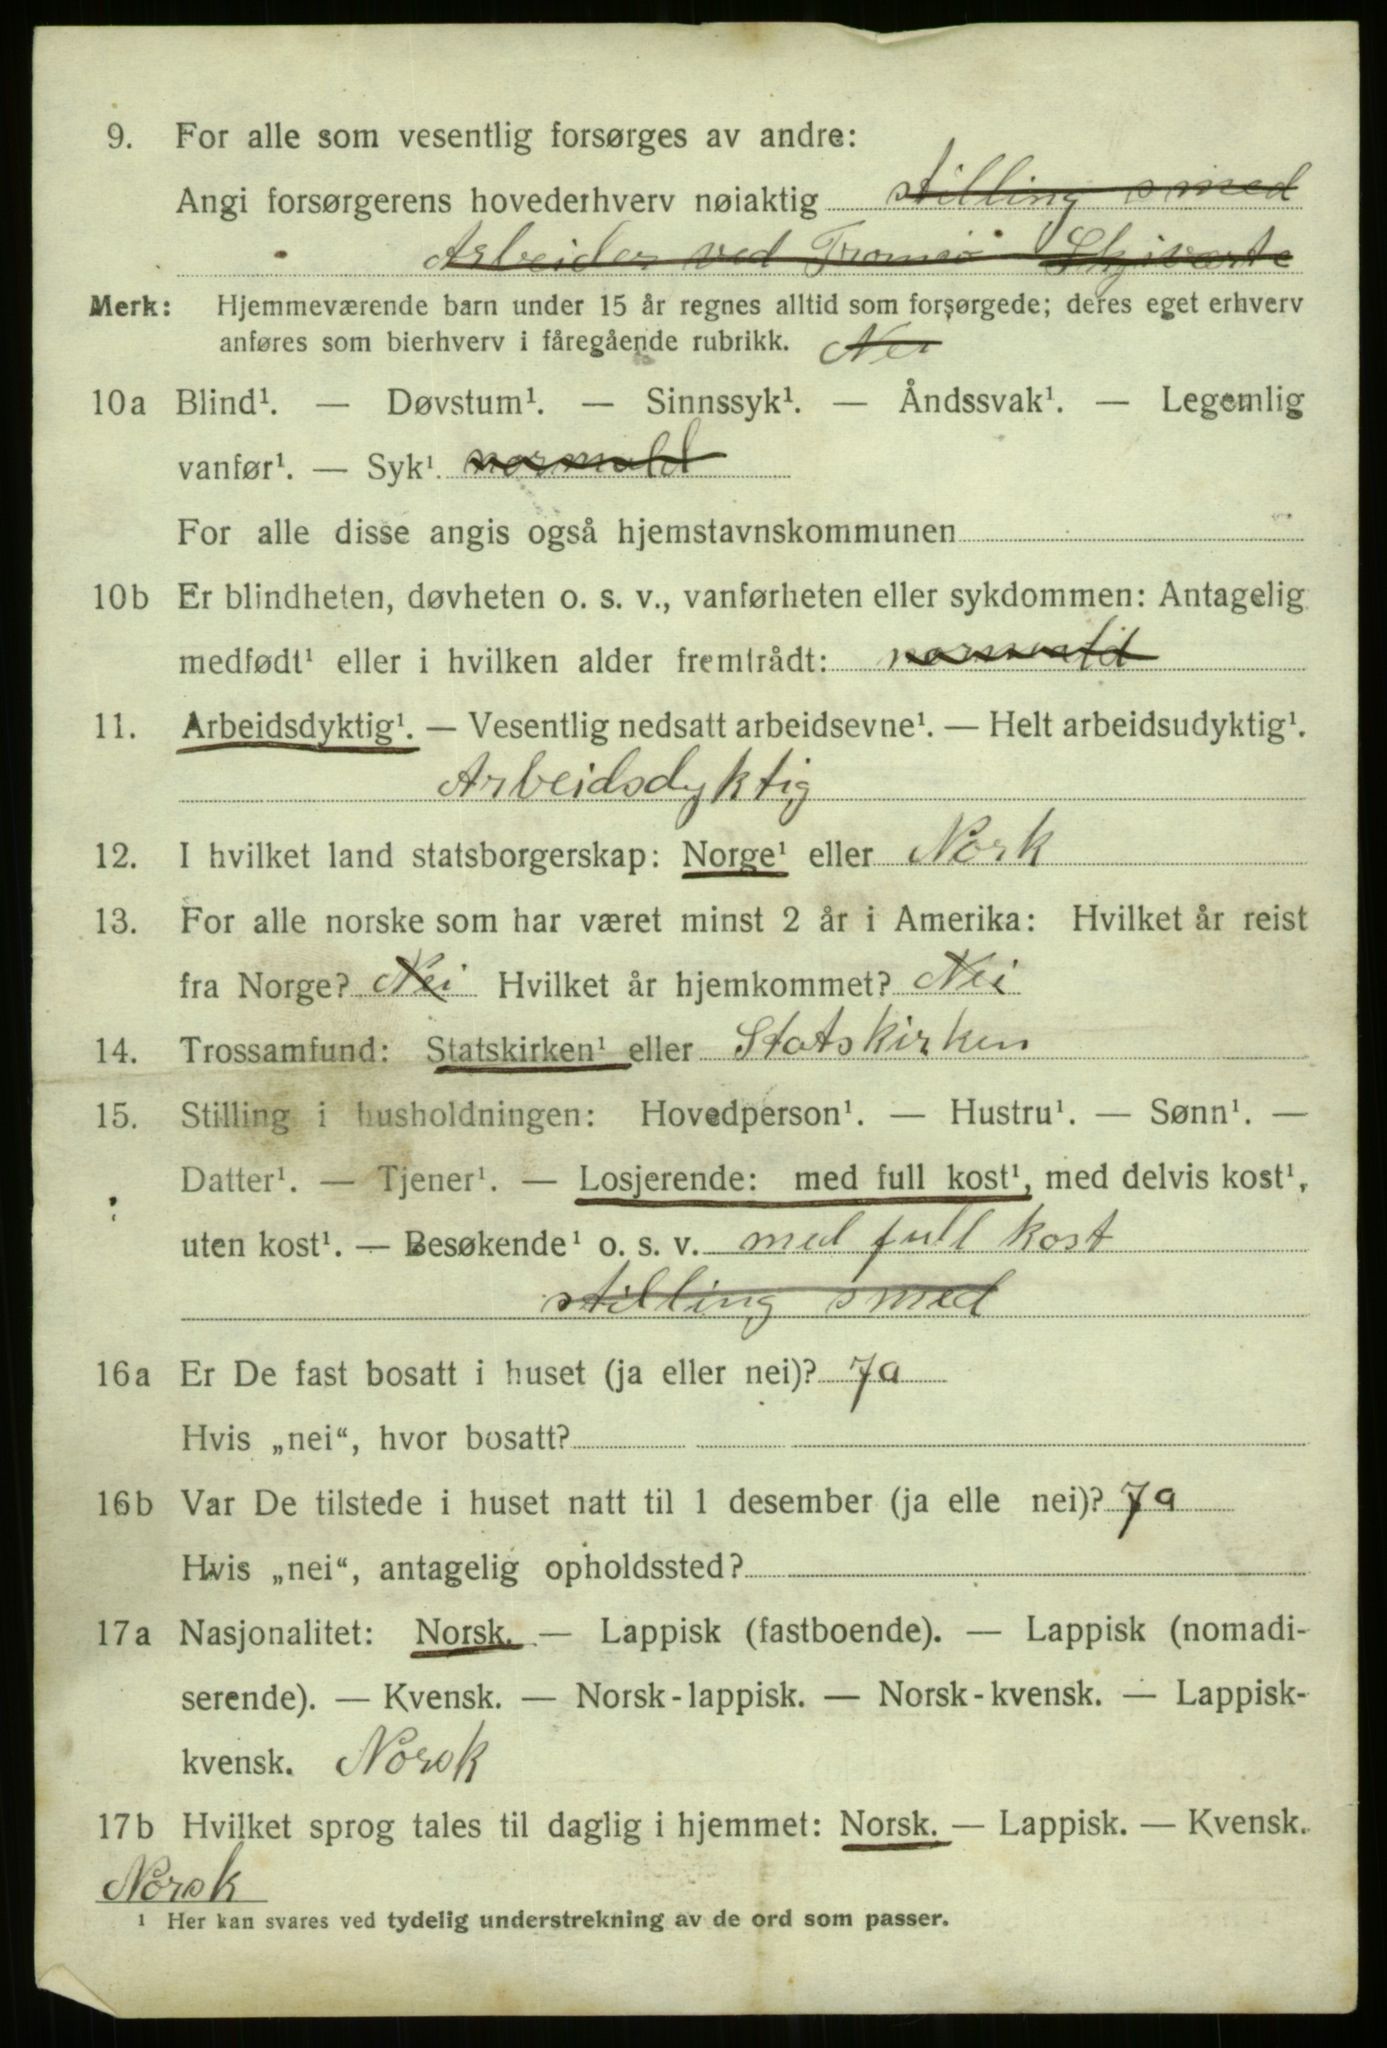 9. For alle som vesentlig forsørges av andre:
Angi forsørgerens hovederhverv nøiaktig stilling smed
Arbeider ved Tromsø Skjiværte
Merk: Hjemmeværende barn under 15 år regnes alltid som forsørgede; deres eget erhverv
anføres som bierhverv i fåregående rubrikk. Nei
10a Blind¹. — Døvstum¹. — Sinnssyk¹. — Åndssvak¹. — Legemlig
vanfør¹. — Syk¹. normald
For alle disse angis også hjemstavnskommunen
10b Er blindheten, døvheten o. s. v., vanførheten eller sykdommen: Antagelig
medfødt¹ eller i hvilken alder fremtrådt: normald
11. Arbeidsdyktig¹. — Vesentlig nedsatt arbeidsevne¹. — Helt arbeidsudyktig¹.
Arbeidsdyktig
12. I hvilket land statsborgerskap: Norge¹ eller Nork
13. For alle norske som har været minst 2 år i Amerika: Hvilket år reist
fra Norge? Nei Hvilket år hjemkommet? Nei
14. Trossamfund: Statskirken¹ eller Statskirken
15. Stilling i husholdningen: Hovedperson¹. — Hustru¹. — Sønn¹. —
Datter¹. — Tjener¹. — Losjerende: med full kost¹, med delvis kost¹,
uten kost¹. — Besøkende¹ o. s. v. med full kost
stilling smed
16a Er De fast bosatt i huset (ja eller nei)? Ja
Hvis „nei“, hvor bosatt?
16b Var De tilstede i huset natt til 1 desember (ja elle nei)? Ja
Hvis „nei“, antagelig opholdssted?
17a Nasjonalitet: Norsk. — Lappisk (fastboende). — Lappisk (nomadi-
serende). — Kvensk. — Norsk-lappisk. — Norsk-kvensk. — Lappisk-
kvensk. Norsk
17b Hvilket sprog tales til daglig i hjemmet: Norsk. — Lappisk. — Kvensk.
Norsk
¹ Her kan svares ved tydelig understrekning av de ord som passer.